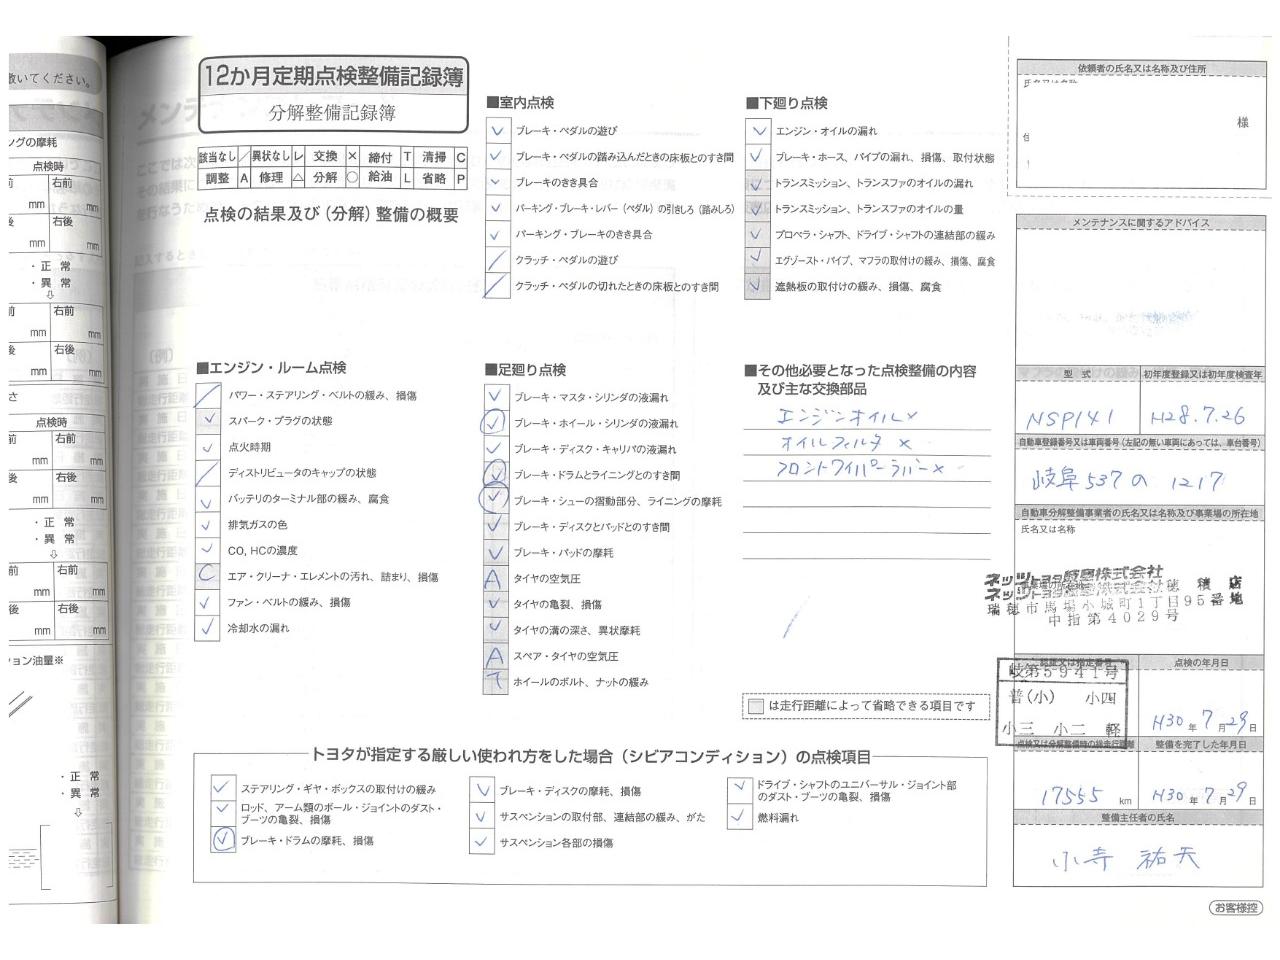 敷いてください。
ングの摩耗
点検時
右前
mm
mm
右後
mm
mm
・正 常
・異 常
右前
mm
mm
右後
mm
mm
点検時
右前
mm
mm
右後
mm
mm
・正 常
・異 常
右前
mm
mm
右後
mm
mm
ション油量※
・正 常
・異 常
12か月定期点検整備記録簿
分解整備記録簿
該当なし ／ 異状なし レ 交換 × 締付 T 清掃 C
調整 A 修理 △ 分解 ○ 給油 L 省略 P
点検の結果及び(分解)整備の概要
■エンジン・ルーム点検
パワー・ステアリング・ベルトの緩み、損傷
スパーク・プラグの状態
点火時期
ディストリビュータのキャップの状態
バッテリのターミナル部の緩み、腐食
排気ガスの色
CO, HCの濃度
C エア・クリーナ・エレメントの汚れ、詰まり、損傷
ファン・ベルトの緩み、損傷
冷却水の漏れ
■室内点検
ブレーキ・ペダルの遊び
ブレーキ・ペダルの踏み込んだときの床板とのすき間
ブレーキのきき具合
パーキング・ブレーキ・レバー(ペダル)の引きしろ(踏みしろ)
パーキング・ブレーキのきき具合
クラッチ・ペダルの遊び
クラッチ・ペダルの切れたときの床板とのすき間
■足廻り点検
ブレーキ・マスタ・シリンダの液漏れ
ブレーキ・ホイール・シリンダの液漏れ
ブレーキ・ディスク・キャリパの液漏れ
ブレーキ・ドラムとライニングとのすき間
ブレーキ・シューの摺動部分、ライニングの摩耗
ブレーキ・ディスクとパッドとのすき間
ブレーキ・パッドの摩耗
A タイヤの空気圧
タイヤの亀裂、損傷
タイヤの溝の深さ、異状摩耗
A スペア・タイヤの空気圧
T ホイールのボルト、ナットの緩み
■下廻り点検
エンジン・オイルの漏れ
ブレーキ・ホース、パイプの漏れ、損傷、取付状態
トランスミッション、トランスファのオイルの漏れ
トランスミッション、トランスファのオイルの量
プロペラ・シャフト、ドライブ・シャフトの連結部の緩み
エグゾースト・パイプ、マフラの取付けの緩み、損傷、腐食
遮熱板の取付けの緩み、損傷、腐食
■その他必要となった点検整備の内容
及び主な交換部品
エンジンオイル ×
オイルフィルタ ×
フロントワイパーラバー ×
は走行距離によって省略できる項目です
トヨタが指定する厳しい使われ方をした場合(シビアコンディション)の点検項目
ステアリング・ギヤ・ボックスの取付けの緩み
ロッド、アーム類のボール・ジョイントのダスト・
ブーツの亀裂、損傷
ブレーキ・ドラムの摩耗、損傷
ブレーキ・ディスクの摩耗、損傷
サスペンションの取付部、連結部の緩み、がた
サスペンション各部の損傷
ドライブ・シャフトのユニバーサル・ジョイント部
のダスト・ブーツの亀裂、損傷
燃料漏れ
依頼者の氏名又は名称及び住所
様
メンテナンスに関するアドバイス
型 式
初年度登録又は初年度検査年
NSP141
H28.7.26
自動車登録番号又は車両番号(左記の無い車両にあっては、車台番号)
岐阜 537 の 1217
自動車分解整備事業者の氏名又は名称及び事業場の所在地
氏名又は名称
ネッツトヨタ岐阜株式会社
ネッツトヨタ岐阜株式会社 穂積店
瑞穂市馬場小城町1丁目95番地
中指第4029号
認証又は指定番号
岐第5941号
普(小) 小四
小三 小二 軽
点検の年月日
H30 年 7 月 29 日
点検又は分解整備時の総走行距離
17555 km
整備を完了した年月日
H30 年 7 月 29 日
整備主任者の氏名
小寺 祐天
お客様控